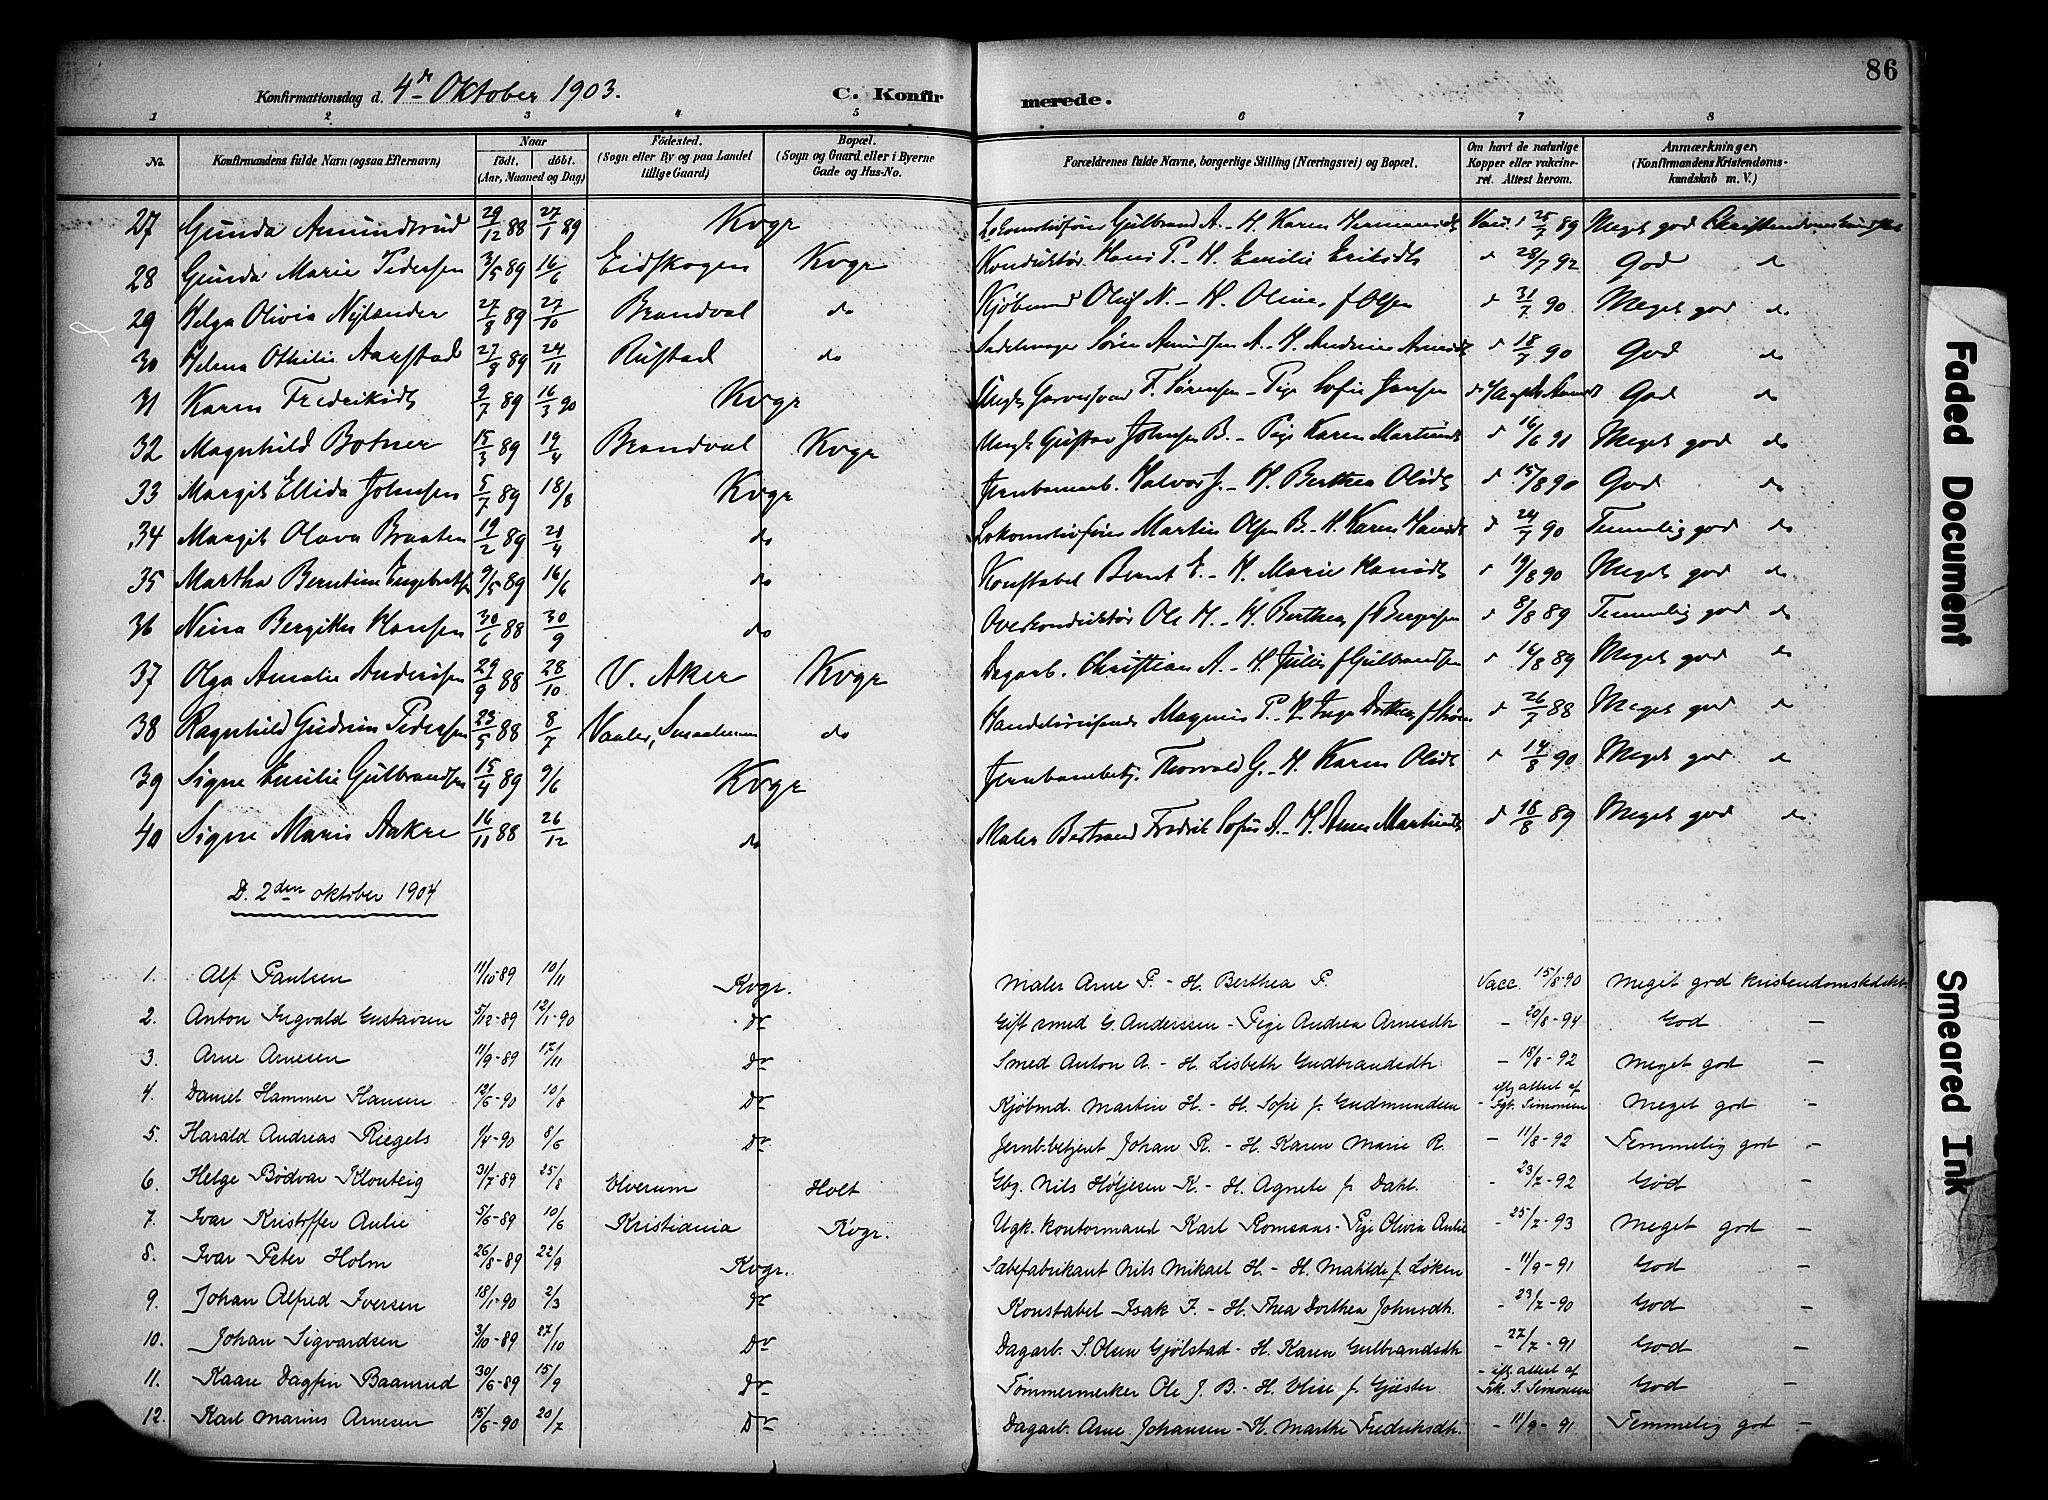 86
Konfirmationsdag d. 4de Oktober 1903. C. Konfirmerede.
1 2 3 4 5 6 7 8
No. Konfirmandens fulde Navn (ogsaa Efternavn) Naar født, døbt. (Aar, Maaned og Dag) Fødested. (Sogn eller By og paa Landet tillige Gaard) Bopæl. (Sogn og Gaard, eller i Byerne Gade og Hus-No. Forældrenes fulde Navne, borgerlige Stilling (Næringsvei) og Bopæl. Om havt de naturlige Kopper eller vakcineret. Attest herom. Anmærkninger, (Konfirmandens Kristendomskundskab m. V.)
27 Gunda Amundsrud 29/12 88 27/1 89 Kvgr Lokomotivfører Gulbrand A. - H. Karen Hermansdt Vacc. 25/7 89 Meget god Christendomskundskab
28 Gunda Marie Pedersen 3/5 89 16/6 Eidskogen Kvgr Konduktør Hans P. - H. Emilie Eriksdt d 28/7 92 God do
29 Helga Olivia Nylander 27/8 89 27/10 Brandval do Kjøbmand Oluf N. - H. Oline f Olsen d 31/7 90 Meget god do
30 Helena Othilie Aarstad 27/8 89 24/11 Rustad do Sadelmager Søren Amundsen A. - H. Andrine d 18/7 90 God do
31 Karen Fredriksdt 9/7 89 16/3 90 Kvgr Ungk. Garversvend F. Sørensen - Pige Sofie Jansen God do
32 Magnhild Botner 15/3 89 19/4 Brandval Kvgr Ungk. Gustav Johnsen B. - Pige Karen Martinsdt d 16/6 91 Meget god do
33 Margit Ellida Johnsen 5/7 89 18/8 Kvgr Jernbanearb. Halvor J. - H. Berthea Olsdt d 15/8 90 God do
34 Margit Olava Braaten 19/2 89 21/4 do Lokomotivfører Martin Olsen B. - H. Karen Hansdt d 24/7 90 Temmelig god do
35 Martha Berntine Engebretsen 9/5 89 16/6 do Konstabel Bernt E. - H. Marie Hansdt d 19/8 90 Meget god do
36 Nina Bergitte Hansen 30/6 88 30/9 do Overkonduktør Ole H. - H. Berthea f Bergersen d 8/8 89 Temmelig god do
37 Olga Amalie Andersen 29/9 88 28/10 V. Aker Kvgr Dagarb. Christian A. - H. Julie f Gulbrandsen d 16/8 89 Meget god do
38 Ragnhild Gudrun Pedersen 23/5 88 8/7 Vaaler, Smaalenene do Handelsreisende Magnus P. - H. Inga Dorthea f d 26/7 88 Meget god do
39 Signe Emilie Gulbrandsen 15/4 89 9/6 Kvgr Jernbanebetj. Thorvald G. - H. Karen Olsdt d 14/8 90 Meget god do
40 Signe Marie Aakre 16/11 88 26/12 do Maler Bertrand Fredrik Sofus A. - H. Anne Martinsdt d 18/8 89 Meget god do
D. 2den oktober 1904
1. Alf Paulsen 11/10-89 10/11 Kvgr. Maler Arne P. - H. Berthea P. Vacc. 15/8-90 Meget god kristendomskdskb
2. Anton Ingvald Gustavsen 5/12-89 12/1-90 do Gift smed G. Anderssen - Pige Andrea Arnesdtr - 20/8-94 God -
3. Arne Arnesen 11/9-89 17/11 Do Smed Anton A. - H. Lisbeth Gudbrandsdtr. - 18/8-92 Meget god -
4. Daniel Hammer Hansen 12/6-90 10/8 Do Kjøbmd. Martin H. - H. Sofie f. Gudmundsen - iflg. attest af Simonsen Meget god -
5. Harald Andreas Riegels 1/4-90 8/6 Do Jernb.betjent Johan R. - H. Karen Marie R. - 11/8-92 Temmelig god -
6. Helge Bødvar Klonteig 31/7-89 25/8 Elverum Holt Gbg. Nils Höljesen K. - H. Agnete f. Dahl. - 23/7-92 God -
7. Ivar Kristoffer Aulie 5/6-89 10/6 Kristiania Kvgr. Ugk. kontormand Karl Romsaas - Pige Olivia Aulie - 25/7-93 Meget god -
8. Ivar Peter Holm 26/8-89 22/9 Kvgr. Sæbefabrikant Nils Mikael H. - H. Mathilde f. Løken - 11/9-91 God -
9. Johan Alfred Iversen 18/1-90 2/3 do Konstabel Isak I. - H. Thea Dorthea Johnsdtr. - 23/7-90 God -
10. Johan Sigvardsen 3/10-89 27/10 Do Dagarb. S. Olsen Gjølstad - H. Karen Gulbrandsdtr - 27/7-91 God -
11. Kaare Dagfin Baanrud 30/6-89 15/9 Do Tømmermerker Ole J. B. - H. Elise f. Gjester - iflg. attest af S. Simonsen God -
12. Karl Marius Arnesen 15/6-90 20/7 Do Dagarb. Arne Johansen - H. Marthe Fredriksdtr. - 11/9-91 Temmelig god -
Faded Document
Smeared Ink